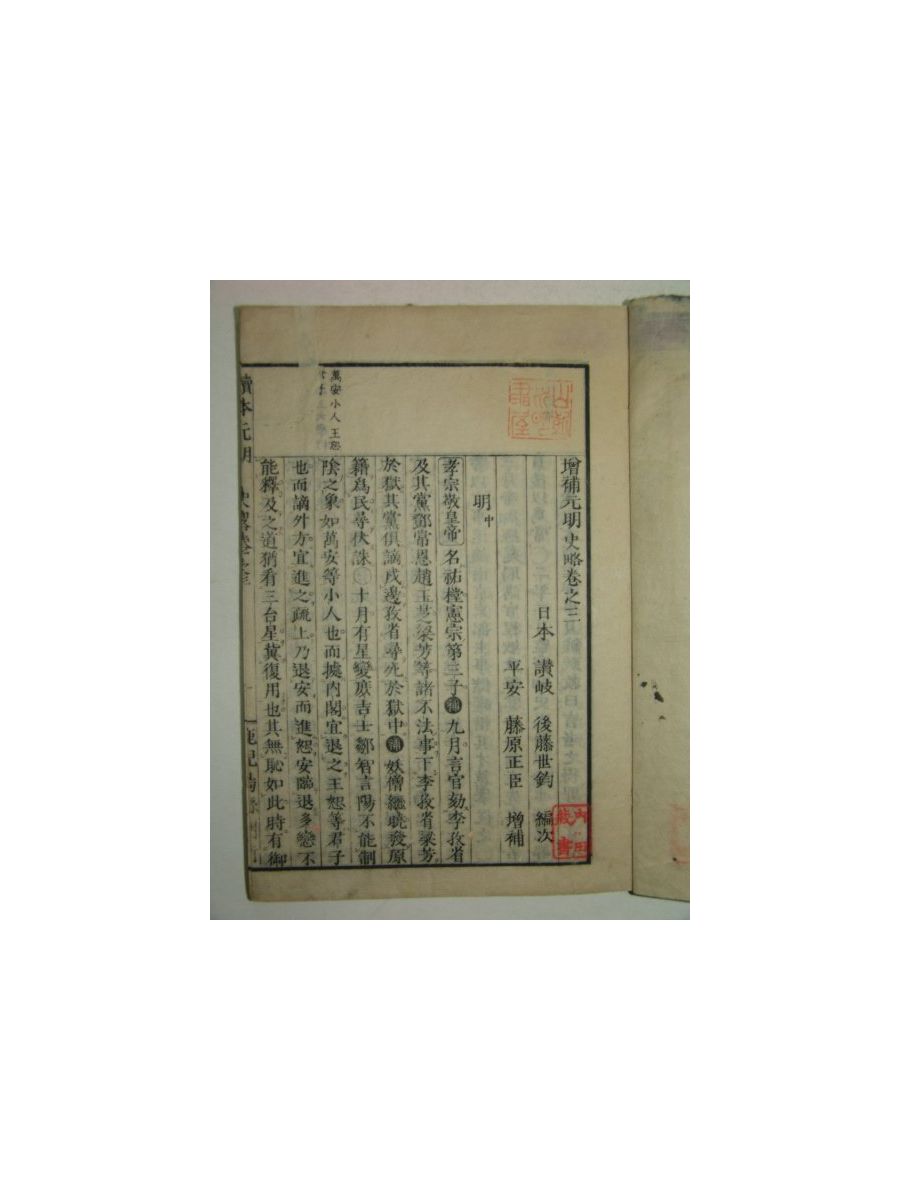 增補元明史略卷之三
日本 讃岐 後藤世鈞 編次
平安 藤原正臣 增補
明中
孝宗敬皇帝 名祐樘憲宗第三子補九月言官劾李孜省
及其黨鄧常恩趙玉芝梁芳等諸不法事下李孜省梁芳
於獄其黨俱謫戍邊孜省尋死於獄中補妖僧繼曉發原
籍爲民尋伏誅 十月有星變庶吉士鄒智言陽不能制
陰之象如萬安等小人也而據內閣宜退之王恕等君子
也而謫外方宜進之疏上乃退安而進恕安臨退多戀不
能釋及之道猶看三台星冀復用也其無恥如此時有御
萬安小人王恕
讀本元明 史略卷之三
內田
藏書